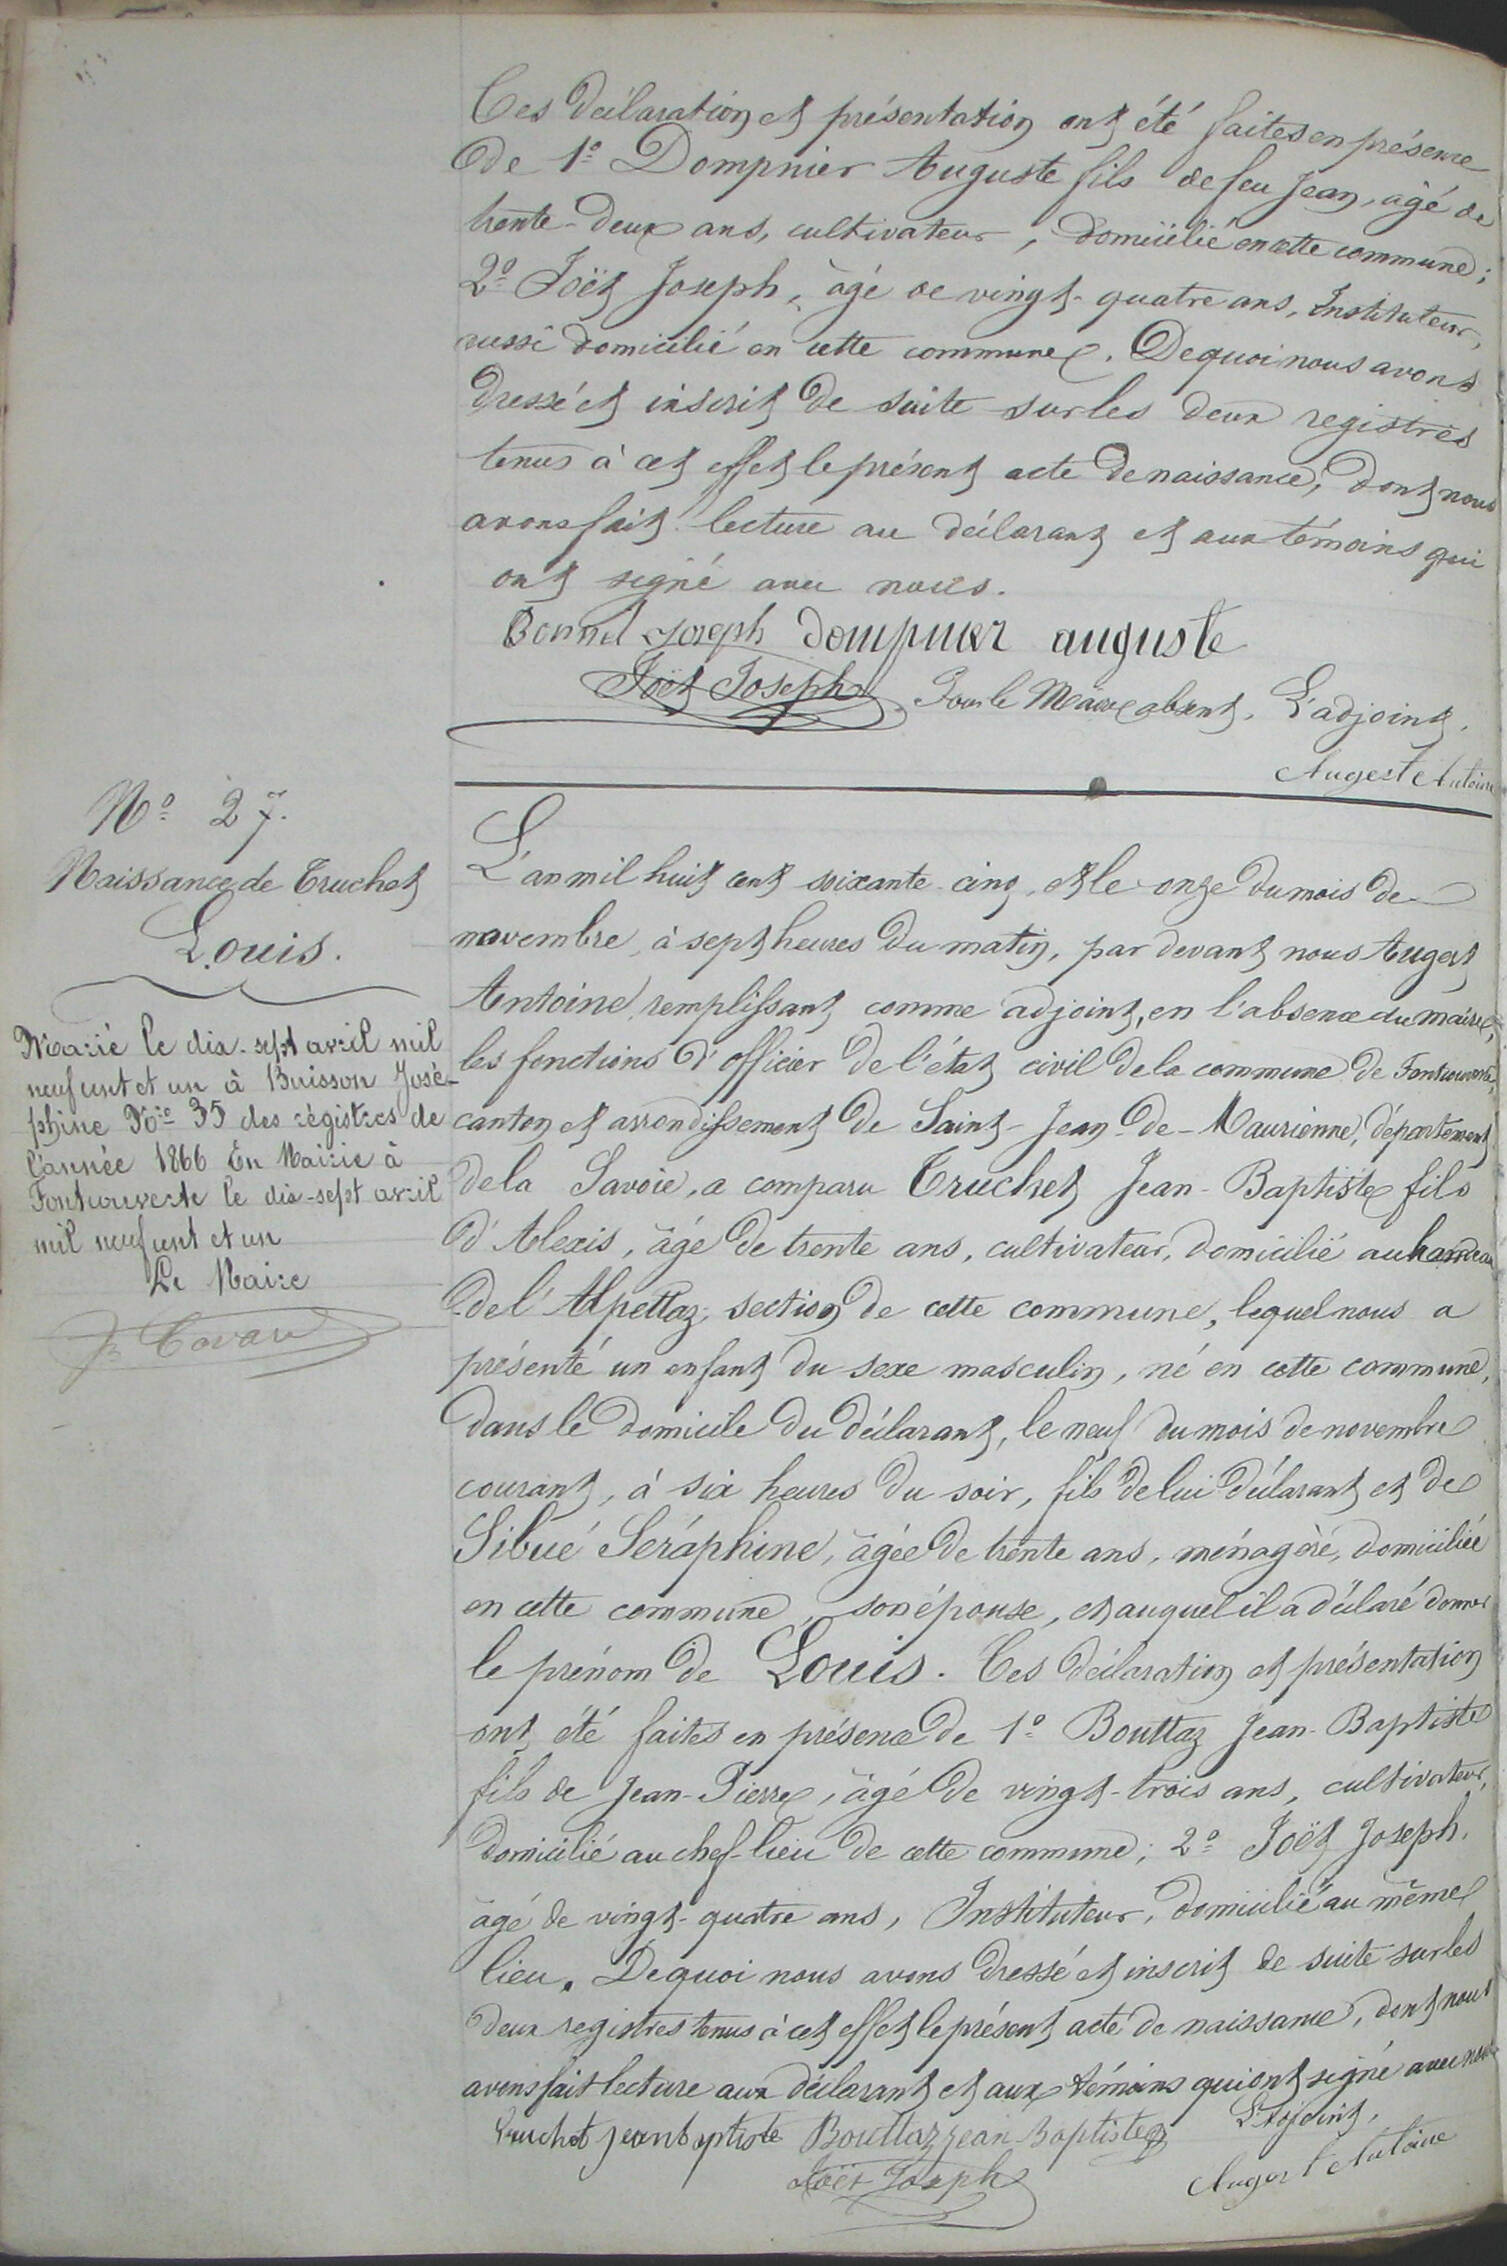 Ces déclaration et présentation ont été faites en présence
de 1º Dompnier Auguste fils de feu Jean, âgé de
trente-deux ans, cultivateur, domicilié en cette commune;
2º Joët Joseph, âgé de vingt-quatre ans, Instituteur,
aussi domicilié en cette commune. De quoi nous avons
dressé et inscrit de suite sur les deux registres
tenus à cet effet le présent acte de naissance, dont nous
avons fait lecture au déclarant et aux témoins qui
ont signé avec nous.
Bonnel Joseph dompnier auguste
Joët Joseph Pour le Maire absent, L'adjoint,
Augert Antoine
Nº 27.
Naissance de Truchet
Louis.
Marié le dix-sept avril mil
neuf cent et un à Buisson José-
phine Nº 35 des régistres de
l'année 1866 En Mairie à
Fontcouverte le dix-sept avril
mil neuf cent et un
Le Maire
L'an mil huit cent soixante-cinq, et le onze du mois de
novembre, à sept heures du matin, par devant nous Augert
Antoine, remplissant comme adjoint, en l'absence du maire,
les fonctions d'officier de l'état civil de la commune de Fontcouverte,
canton et arrondissement de Saint-Jean-de-Maurienne, département
de la Savoie, a comparu Truchet Jean-Baptiste fils
d'Alexis, âgé de trente ans, cultivateur, domicilié au hameau
de l'Alpettaz, section de cette commune, lequel nous a
présenté un enfant du sexe masculin, né en cette commune,
dans le domicile du déclarant, le neuf du mois de novembre
courant, à six heures du soir, fils de lui déclarant et de
Sibué Séraphine, âgée de trente ans, ménagère, domiciliée
en cette commune, son épouse, et auquel il a déclaré donner
le prénom de Louis. Ces déclaration et présentation
ont été faites en présence de 1º Bouttaz Jean-Baptiste
fils de Jean-Pierre, âgé de vingt-trois ans, cultivateur,
domicilié au chef-lieu de cette commune; 2º Joët Joseph,
âgé de vingt-quatre ans, Instituteur, domicilié au même
lieu. De quoi nous avons dressé et inscrit de suite sur les
deux registres tenus à cet effet le présent acte de naissance, dont nous
avons fait lecture aux déclarant et aux témoins qui ont signé avec nous
Truchet jean baptiste Bouttaz jean-Baptiste L'Adjoint,
Joët Joseph Augert Antoine